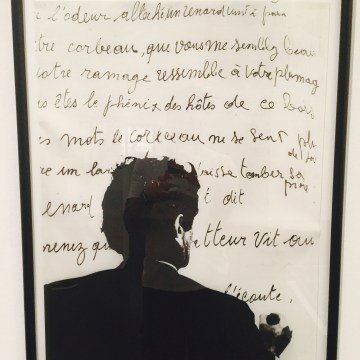 l'odeur alléché, un renard vint à peu
tre corbeau, que vous me semblez beau
votre ramage ressemble à votre plumag
us êtes le phénix des hôtes de ce bois
es mots le corbeau ne se sent plu
de joi
re un lar aisse tomber sa
proie
enard t dit
renez qu tteur vit au
l'écoute.